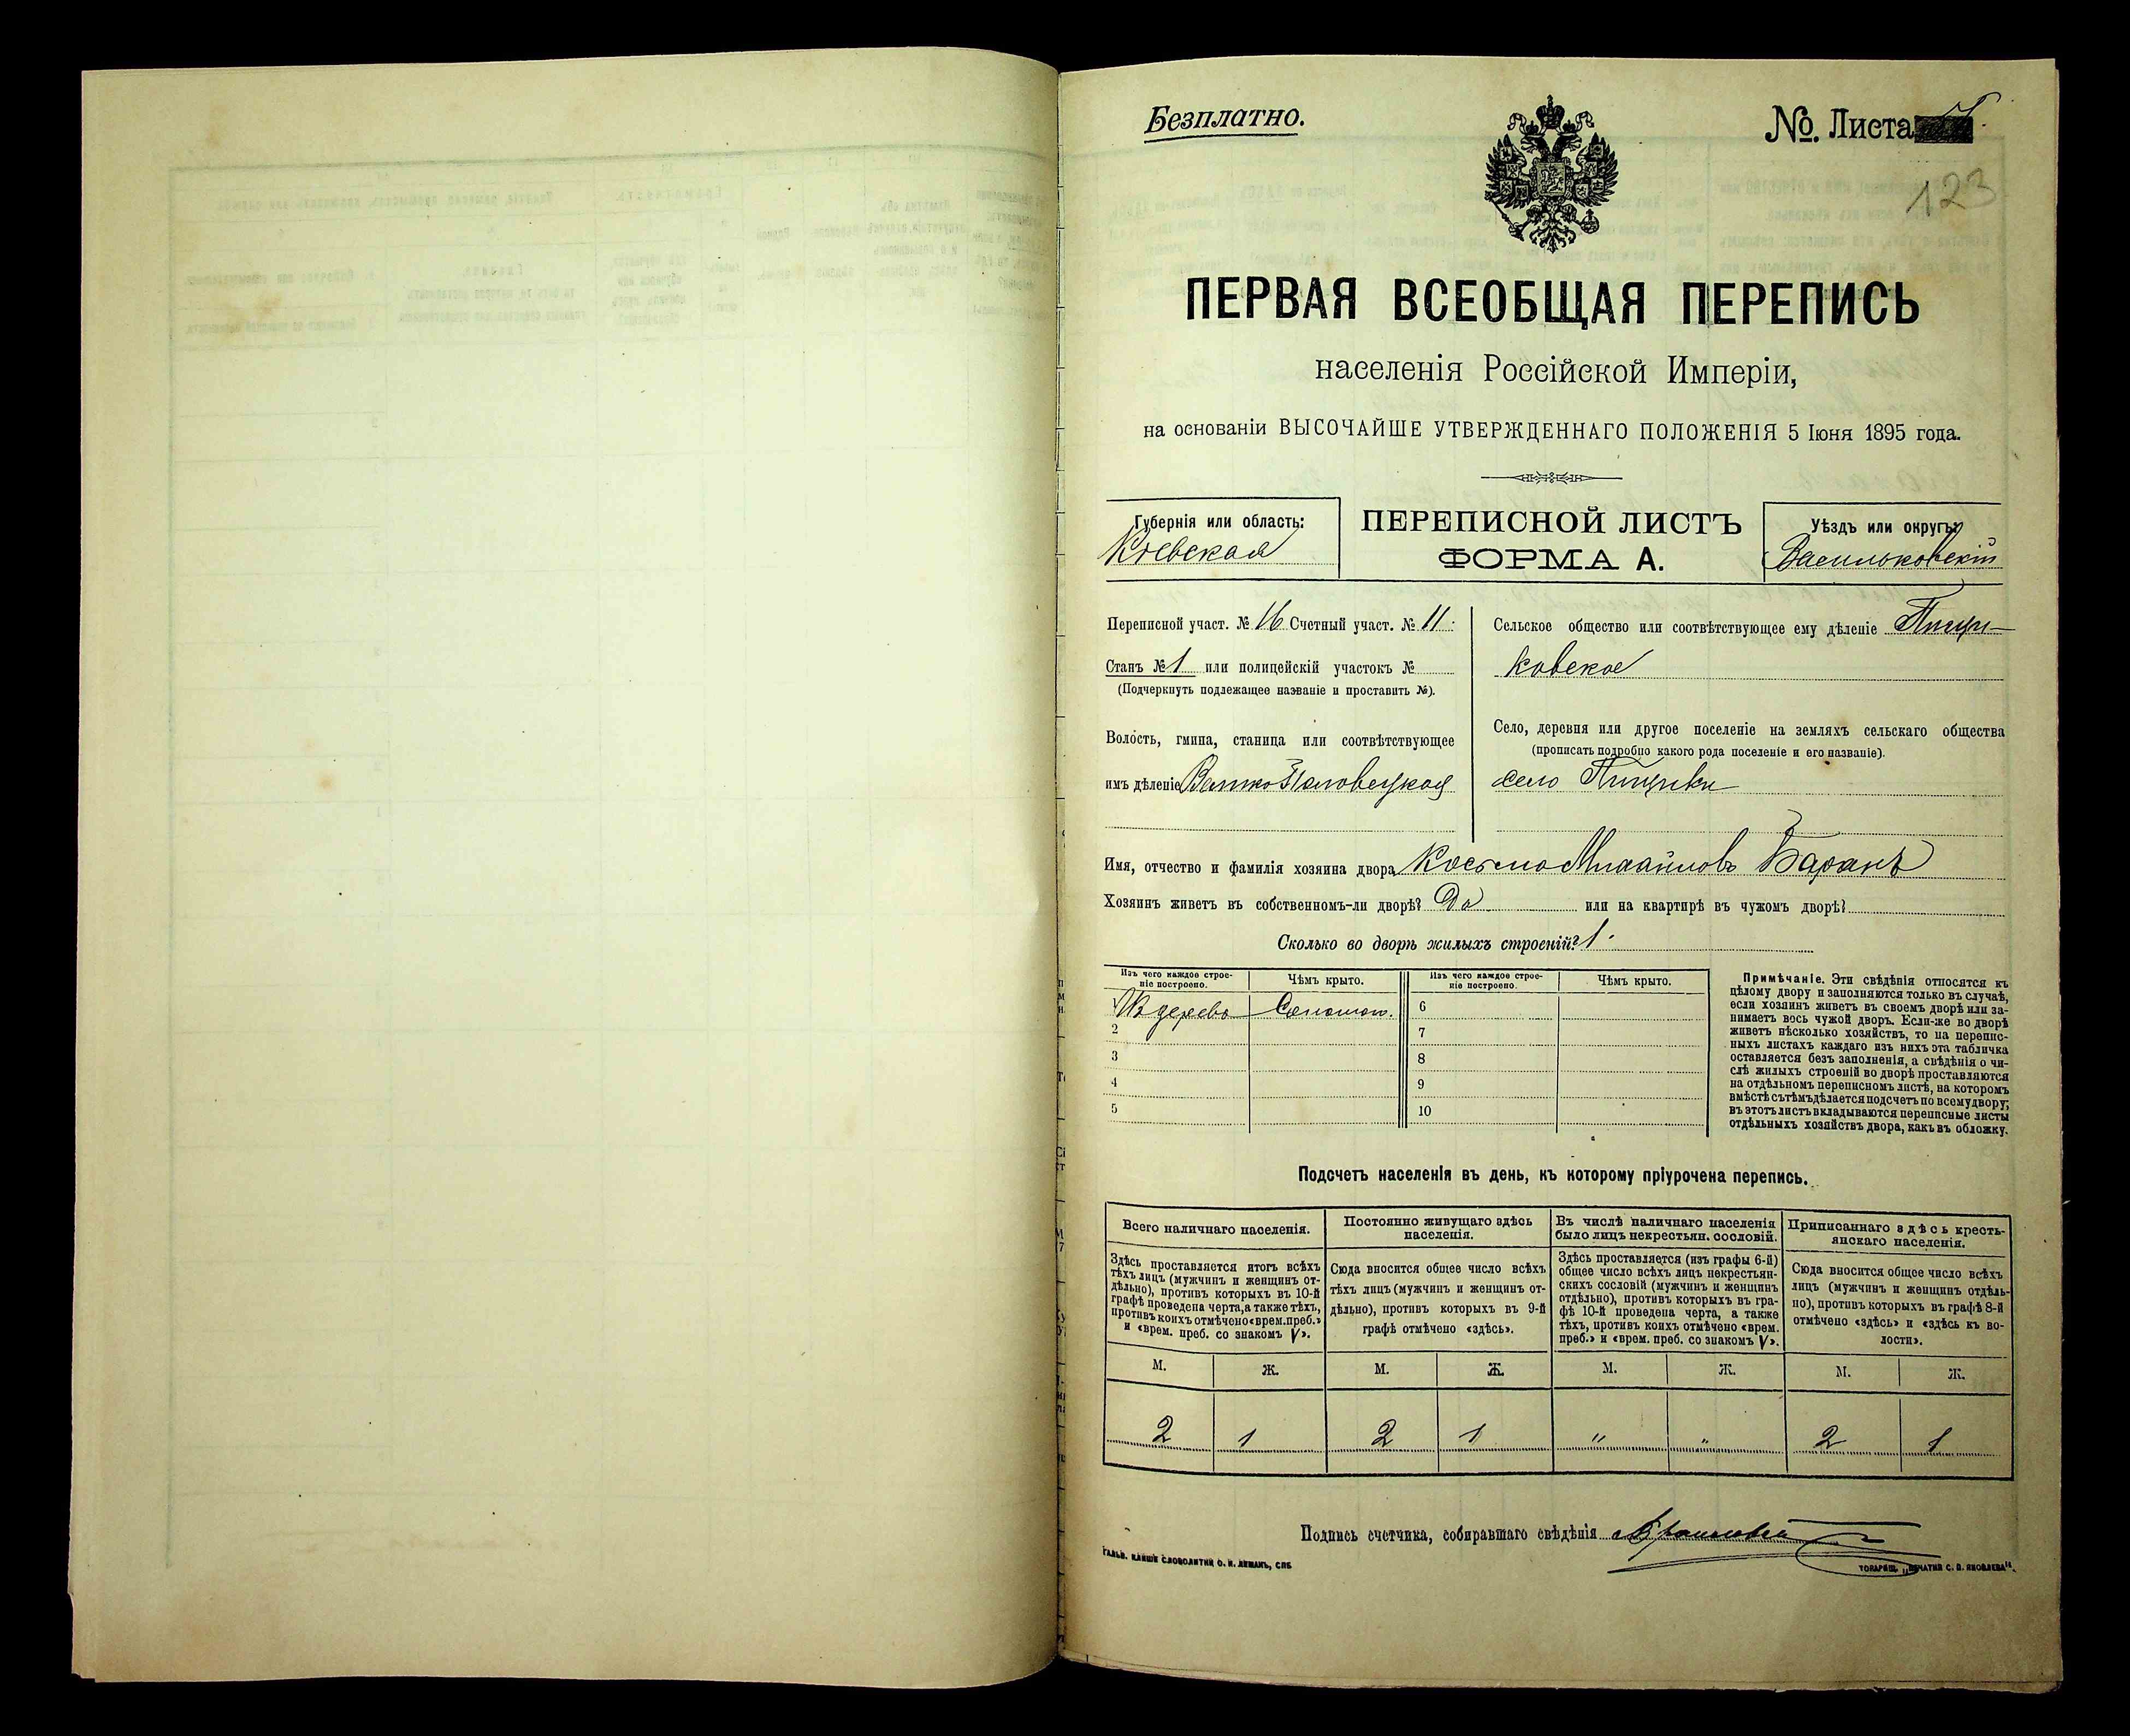 Безплатно.
№. Листа
123
ПЕРВАЯ ВСЕОБЩАЯ ПЕРЕПИСЬ
населенія Россійской Имперіи,
на основаніи ВЫСОЧАЙШЕ УТВЕРЖДЕННАГО ПОЛОЖЕНІЯ 5 Іюня 1895 года.
Губернія или область:
Кіевская
ПЕРЕПИСНОЙ ЛИСТЪ
ФОРМА А.
Уѣздъ или округъ:
Васильковскій
Переписной участ. № 16 Счетный участ. № 11.
Станъ № 1 или полицейскій участокъ №
(Подчеркнуть подлежащее названіе и проставить №).
Волость, гмина, станица или соотвѣтствующее
имъ дѣленіе Велико Половецкая
Сельское общество или соотвѣтствующее ему дѣленіе Пищи-
ковское
Село, деревня или другое поселеніе на земляхъ сельскаго общества
(прописать подробно какого рода поселеніе и его названіе).
село Пищики
Имя, отчество и фамилія хозяина двора Косьма Михайловъ Баранъ
Хозяинъ живетъ въ собственномъ-ли дворѣ? Да или на квартирѣ въ чужомъ дворѣ?
Сколько во дворѣ жилыхъ строеній? 1.
Изъ чего каждое строе-
ніе построено.
Чѣмъ крыто.
Изъ чего каждое строе-
ніе построено.
Чѣмъ крыто.
дерева Соломой.
2
3
4
5
6
7
8
9
10
Примѣчаніе. Эти свѣдѣнія относятся къ
цѣлому двору и заполняются только въ случаѣ,
если хозяинъ живетъ въ своемъ дворѣ или за-
нимаетъ весь чужой дворъ. Если-же во дворѣ
живетъ нѣсколько хозяйствъ, то на перепис-
ныхъ листахъ каждаго изъ нихъ эта табличка
оставляется безъ заполненія, а свѣдѣнія о чи-
слѣ жилыхъ строеній во дворѣ проставляются
на отдѣльномъ переписномъ листѣ, на которомъ
вмѣстѣ съ тѣмъ дѣлается подсчетъ по всему двору;
въ этотъ листъ вкладываются переписные листы
отдѣльныхъ хозяйствъ двора, какъ въ обложку.
Подсчетъ населенія въ день, къ которому пріурочена перепись.
Всего наличнаго населенія.
Здѣсь проставляется итогъ всѣхъ
тѣхъ лицъ (мужчинъ и женщинъ от-
дѣльно), противъ которыхъ въ 10-й
графѣ проведена черта, а также тѣхъ,
противъ коихъ отмѣчено «врем. преб.»
и «врем. преб. со знакомъ V».
Постоянно живущаго здѣсь
населенія.
Сюда вносится общее число всѣхъ
тѣхъ лицъ (мужчинъ и женщинъ от-
дѣльно), противъ которыхъ въ 9-й
графѣ отмѣчено «здѣсь».
Въ числѣ наличнаго населенія
было лицъ некрестьян. сословій.
Здѣсь проставляется (изъ графы 6-й)
общее число всѣхъ лицъ некрестьян-
скихъ сословій (мужчинъ и женщинъ
отдѣльно), противъ которыхъ въ гра-
фѣ 10-й проведена черта, а также
тѣхъ, противъ коихъ отмѣчено «врем.
преб.» и «врем. преб. со знакомъ V».
Приписаннаго здѣсь кресть-
янскаго населенія.
Сюда вносится общее число всѣхъ
лицъ (мужчинъ и женщинъ отдѣль-
но), противъ которыхъ въ графѣ 8-й
отмѣчено «здѣсь» и «здѣсь къ во-
лости».
М. Ж. М. Ж. М. Ж. М. Ж.
2 1 2 1 " " 2 1
Подпись счетчика, собиравшаго свѣдѣнія
ГАЛЬВ. КЛИШЕ СЛОВОЛИТНИ О. И. ЛЕМАНЪ, СПБ.
ТОВАРИЩ. „ПЕЧАТНЯ С. П. ЯКОВЛЕВА".